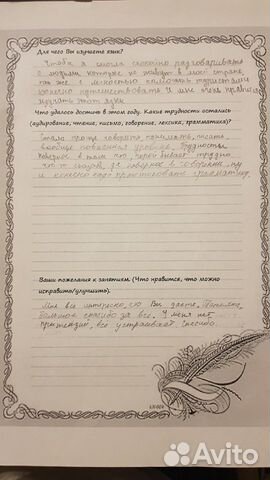 Для чего Вы изучаете язык?
Чтобы я смогла спокойно разговаривать
с людьми которые не живут в моей стране,
так же с лёгкостью
конечно путешествовать и мне очень нравится
изучать этот язык
Что удалось достичь в этом году. Какие трудности остались
(аудирование, чтение, письмо, говорение, лексика, грамматика)?
Стало проще говорить, понимать, писать,
вообще повысился уровень. Трудности
конечно в том что, через бывает трудно
что то сказать, да наверное в говорении, ну
и конечно надо практиковать грамматику.
Ваши пожелания к занятиям. (Что нравится, что можно
исправить/улучшить).
Мне всё интересно, Вы даёте,
большое спасибо за всё. У меня нет
претензий, всё устраивает. Спасибо.
Avito